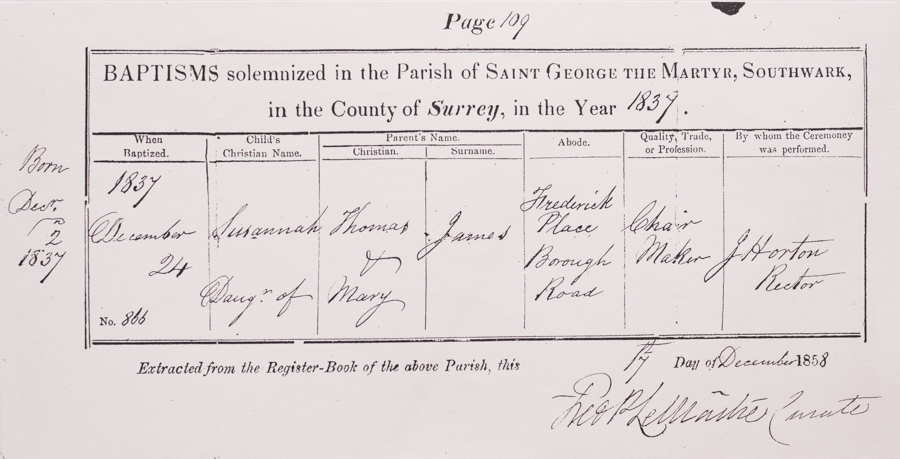 Page 109
BAPTISMS solemnized in the Parish of SAINT GEORGE THE MARTYR, SOUTHWARK,
in the County of Surrey, in the Year 1837.
When Baptized.
Child's Christian Name.
Parent's Name.
Christian.
Surname.
Abode.
Quality, Trade, or Profession.
By whom the Ceremoney was performed.
Born
Decr.
2
1837
1837
December
24
No. 866
Susannah
Daugr. of
Thomas
&
Mary
James
Frederick
Place
Borough
Road
Chair
Maker
J Horton
Rector
Extracted from the Register-Book of the above Parish, this 17 Day of December 1858
Curate